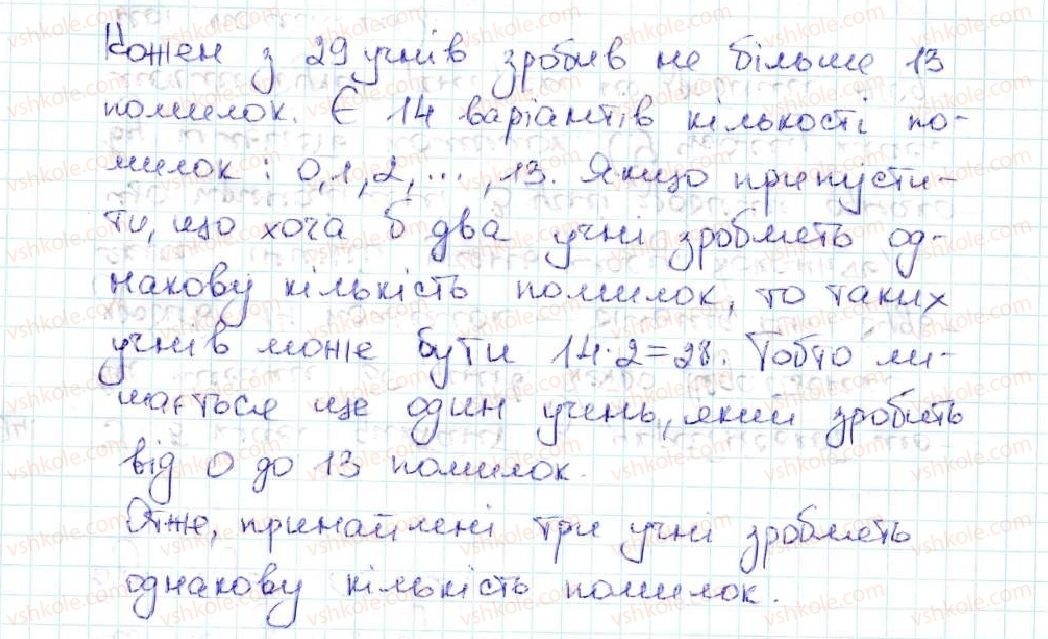 Кожен з 29 учнів зробив не більше 13
помилок. Є 14 варіантів кількості по-
милок: 0,1,2,...,13. Якщо припусти-
ти, що хоча б два учні зроблять од-
накову кількість помилок, то таких
учнів може бути 14·2=28. Тобто ли-
шається ще один учень, який зробить
від 0 до 13 помилок.
Отже, принаймні три учні зроблять
однакову кількість помилок.